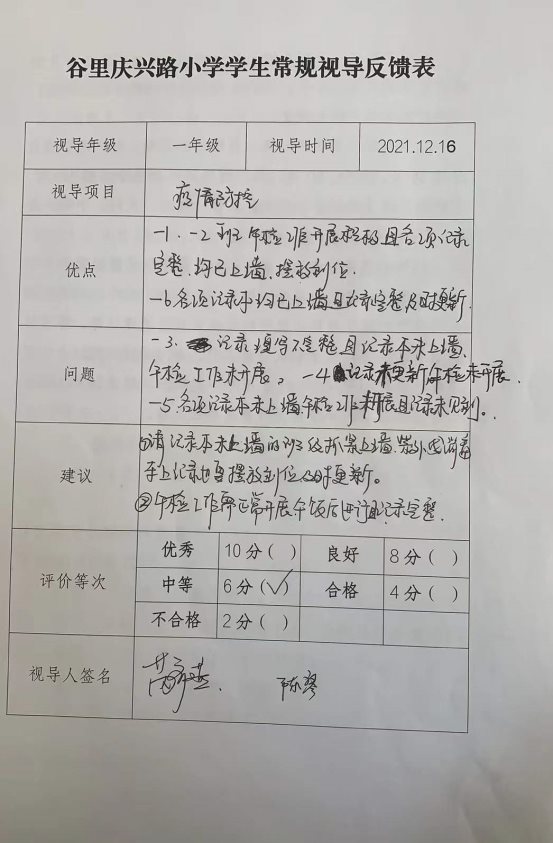 谷里庆兴路小学学生常规视导反馈表
视导年级 一年级 视导时间 2021.12.16
视导项目 疫情防控
优点
一1、一2班午检工作开展积极且各项记录
完整、均已上墙、摆放到位.
一6各项记录本均已上墙且记录完整及时更新.
问题
一3、记录填写不完整且记录本未上墙、
午检工作未开展。一4记录未更新午检未开展.
一5各项记录本未上墙午检工作未开展且记录未见到。
建议
①请记录本未上墙的班级抓紧上墙、紫外线消毒
手上记录也要摆放到位及时更新。
②午检工作需正常开展午饭后进行且记录完整.
评价等次
优秀 10分( ) 良好 8分( )
中等 6分(✓) 合格 4分( )
不合格 2分( )
视导人签名